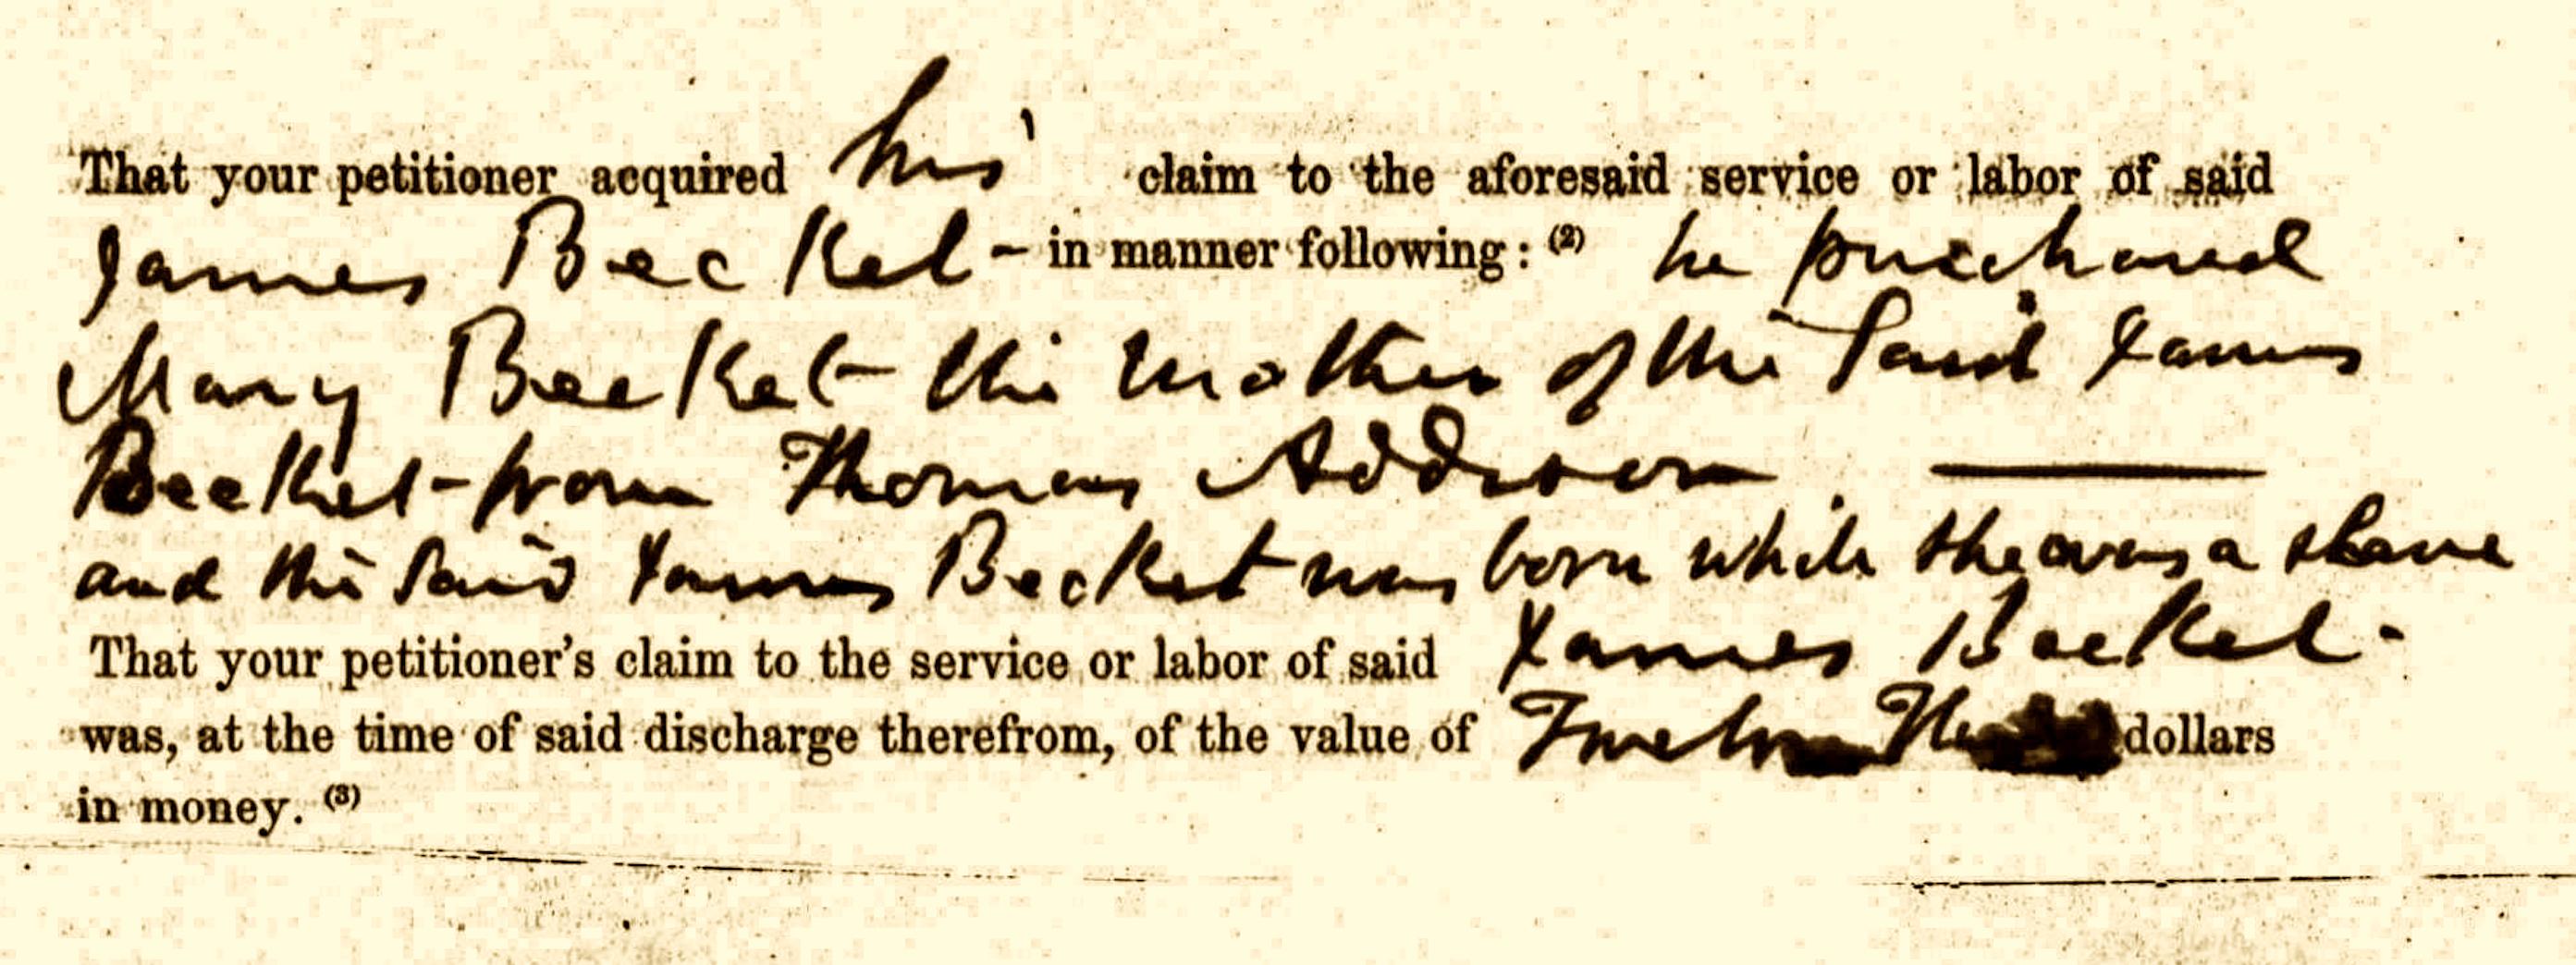 That your petitioner acquired his claim to the aforesaid service or labor of said
James Becket - in manner following: (2) he purchased
Mary Becket the mother of the Said James
Becket from Thomas Addison
and the Said James Becket was born while she was a slave
That your petitioner's claim to the service or labor of said James Becket
was, at the time of said discharge therefrom, of the value of Twelve dollars
in money. (3)